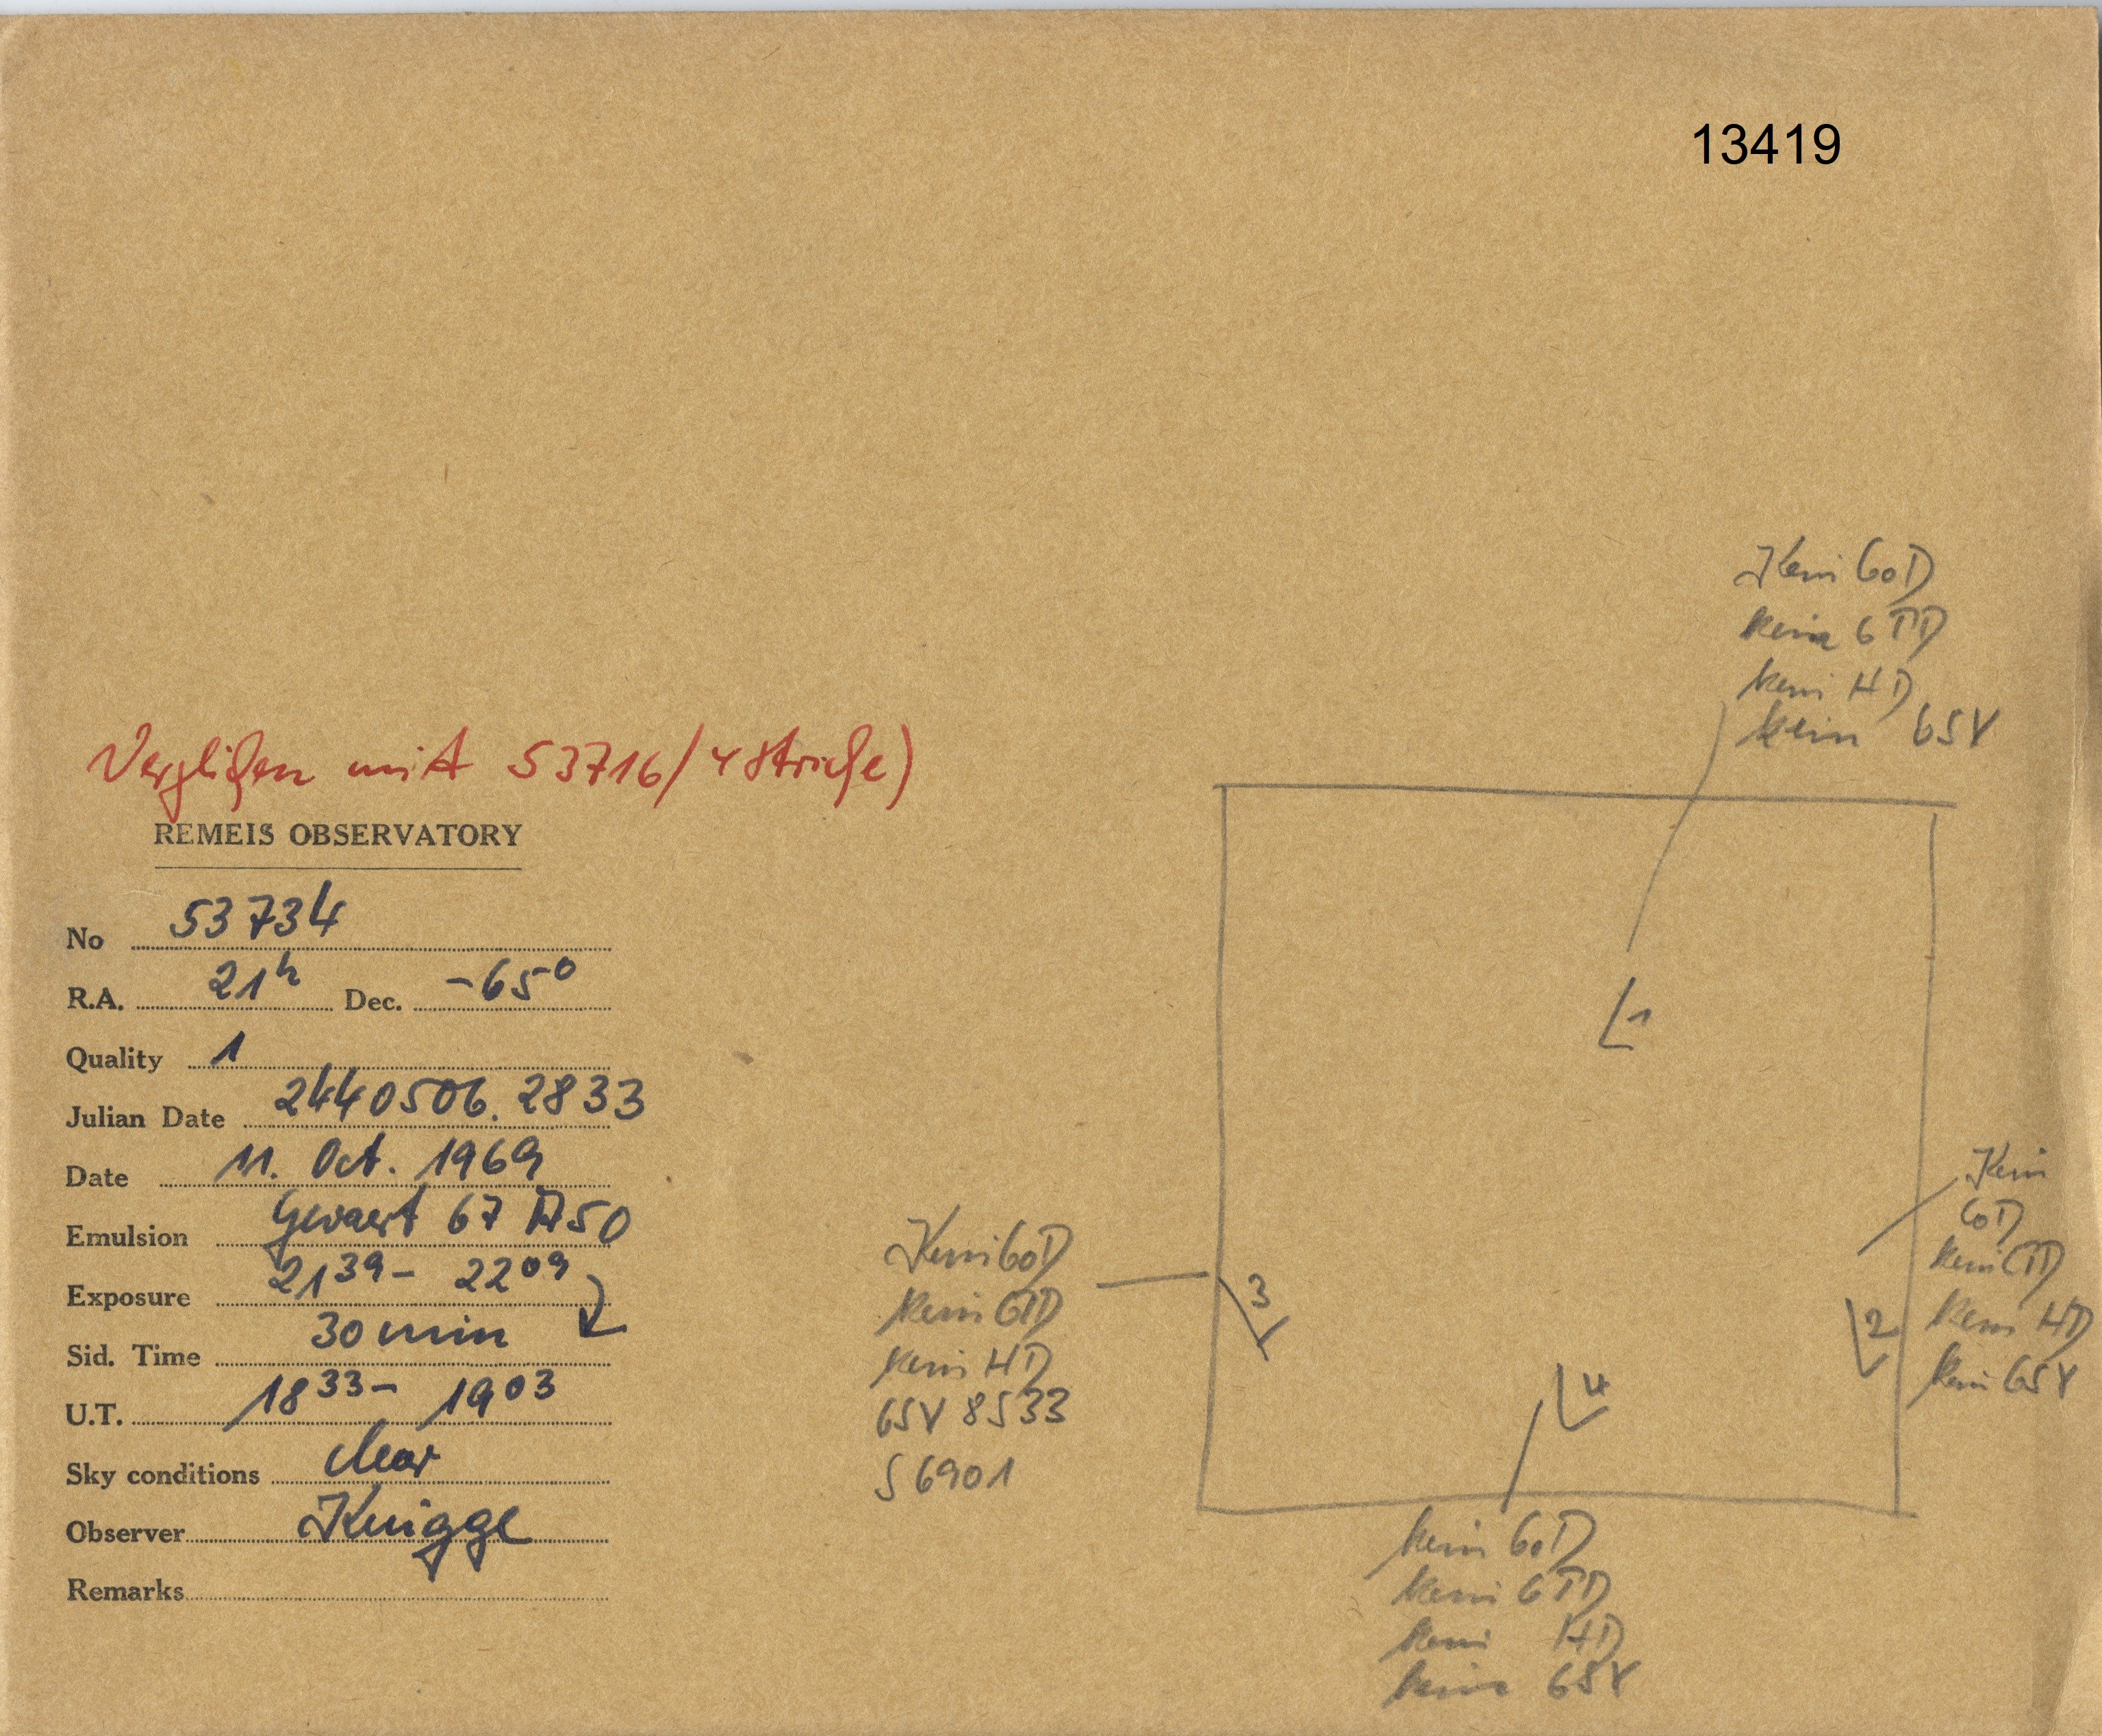 13419
Kein CoD
kein GTD
kein HD
kein GSV
Verglichen mit 53716 / 4 Striche)
REMEIS OBSERVATORY
No 53734
R.A. 21h Dec. -65°
Quality 1
Julian Date 2440506.2833
Date 11. Oct. 1969
Emulsion Gevaert 67 A50
Exposure 21 39 - 22 09
Sid. Time 30 min
U.T. 18 33 - 19 03
Sky conditions clear
Observer Knigge
Remarks
1
Kein
CoD
kein GTD
kein HD
kein GSV
2
Kein CoD
kein GTD
kein HD
GSV 8533
S 6901
3
4
kein CoD
kein GTD
kein HD
kein GSV